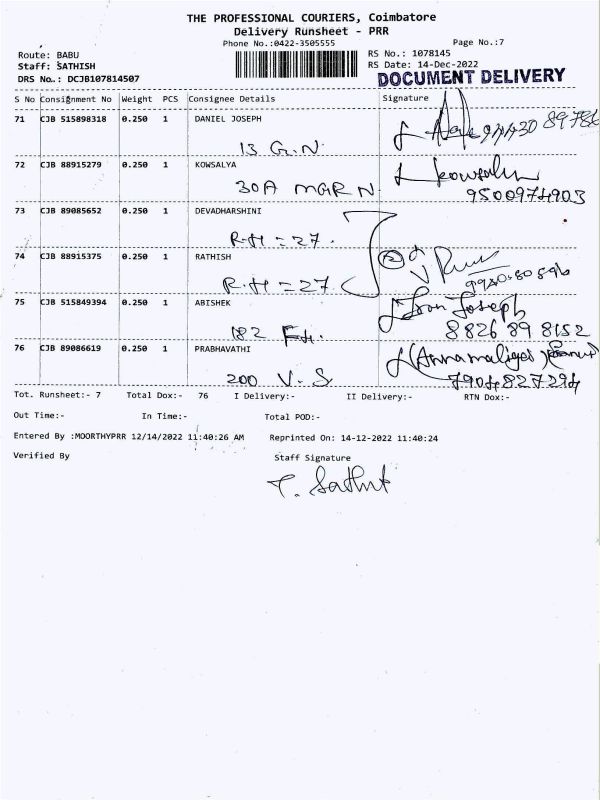 THE PROFESSIONAL COURIERS, Coimbatore
Delivery Runsheet - PRR
Phone No.:0422-3505555
Page No.:7
Route: BABU
RS No.: 1078145
Staff: SATHISH
RS Date: 14-Dec-2022
DRS No.: DCJB107814507
DOCUMENT DELIVERY
S No Consignment No Weight PCS Consignee Details Signature
71 CJB 515898318 0.250 1 DANIEL JOSEPH
13 G.N.
72 CJB 88915279 0.250 1 KOWSALYA kowsalya
30A MGR N 9500974903
73 CJB 89085652 0.250 1 DEVADHARSHINI
R-H = 27.
74 CJB 88915375 0.250 1 RATHISH
R-H = 27
75 CJB 515849394 0.250 1 ABISHEK Joseph
182 8826 89 8152
76 CJB 89086619 0.250 1 PRABHAVATHI
200 V.S 7904827294
Tot. Runsheet:- 7 Total Dox:- 76 I Delivery:- II Delivery:- RTN Dox:-
Out Time:- In Time:- Total POD:-
Entered By :MOORTHYPRR 12/14/2022 11:40:26 AM Reprinted On: 14-12-2022 11:40:24
Verified By Staff Signature